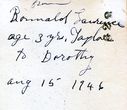 Donnald Lawrence
age 3 yrs, Taylor
to Dorothy
aug 15 1946